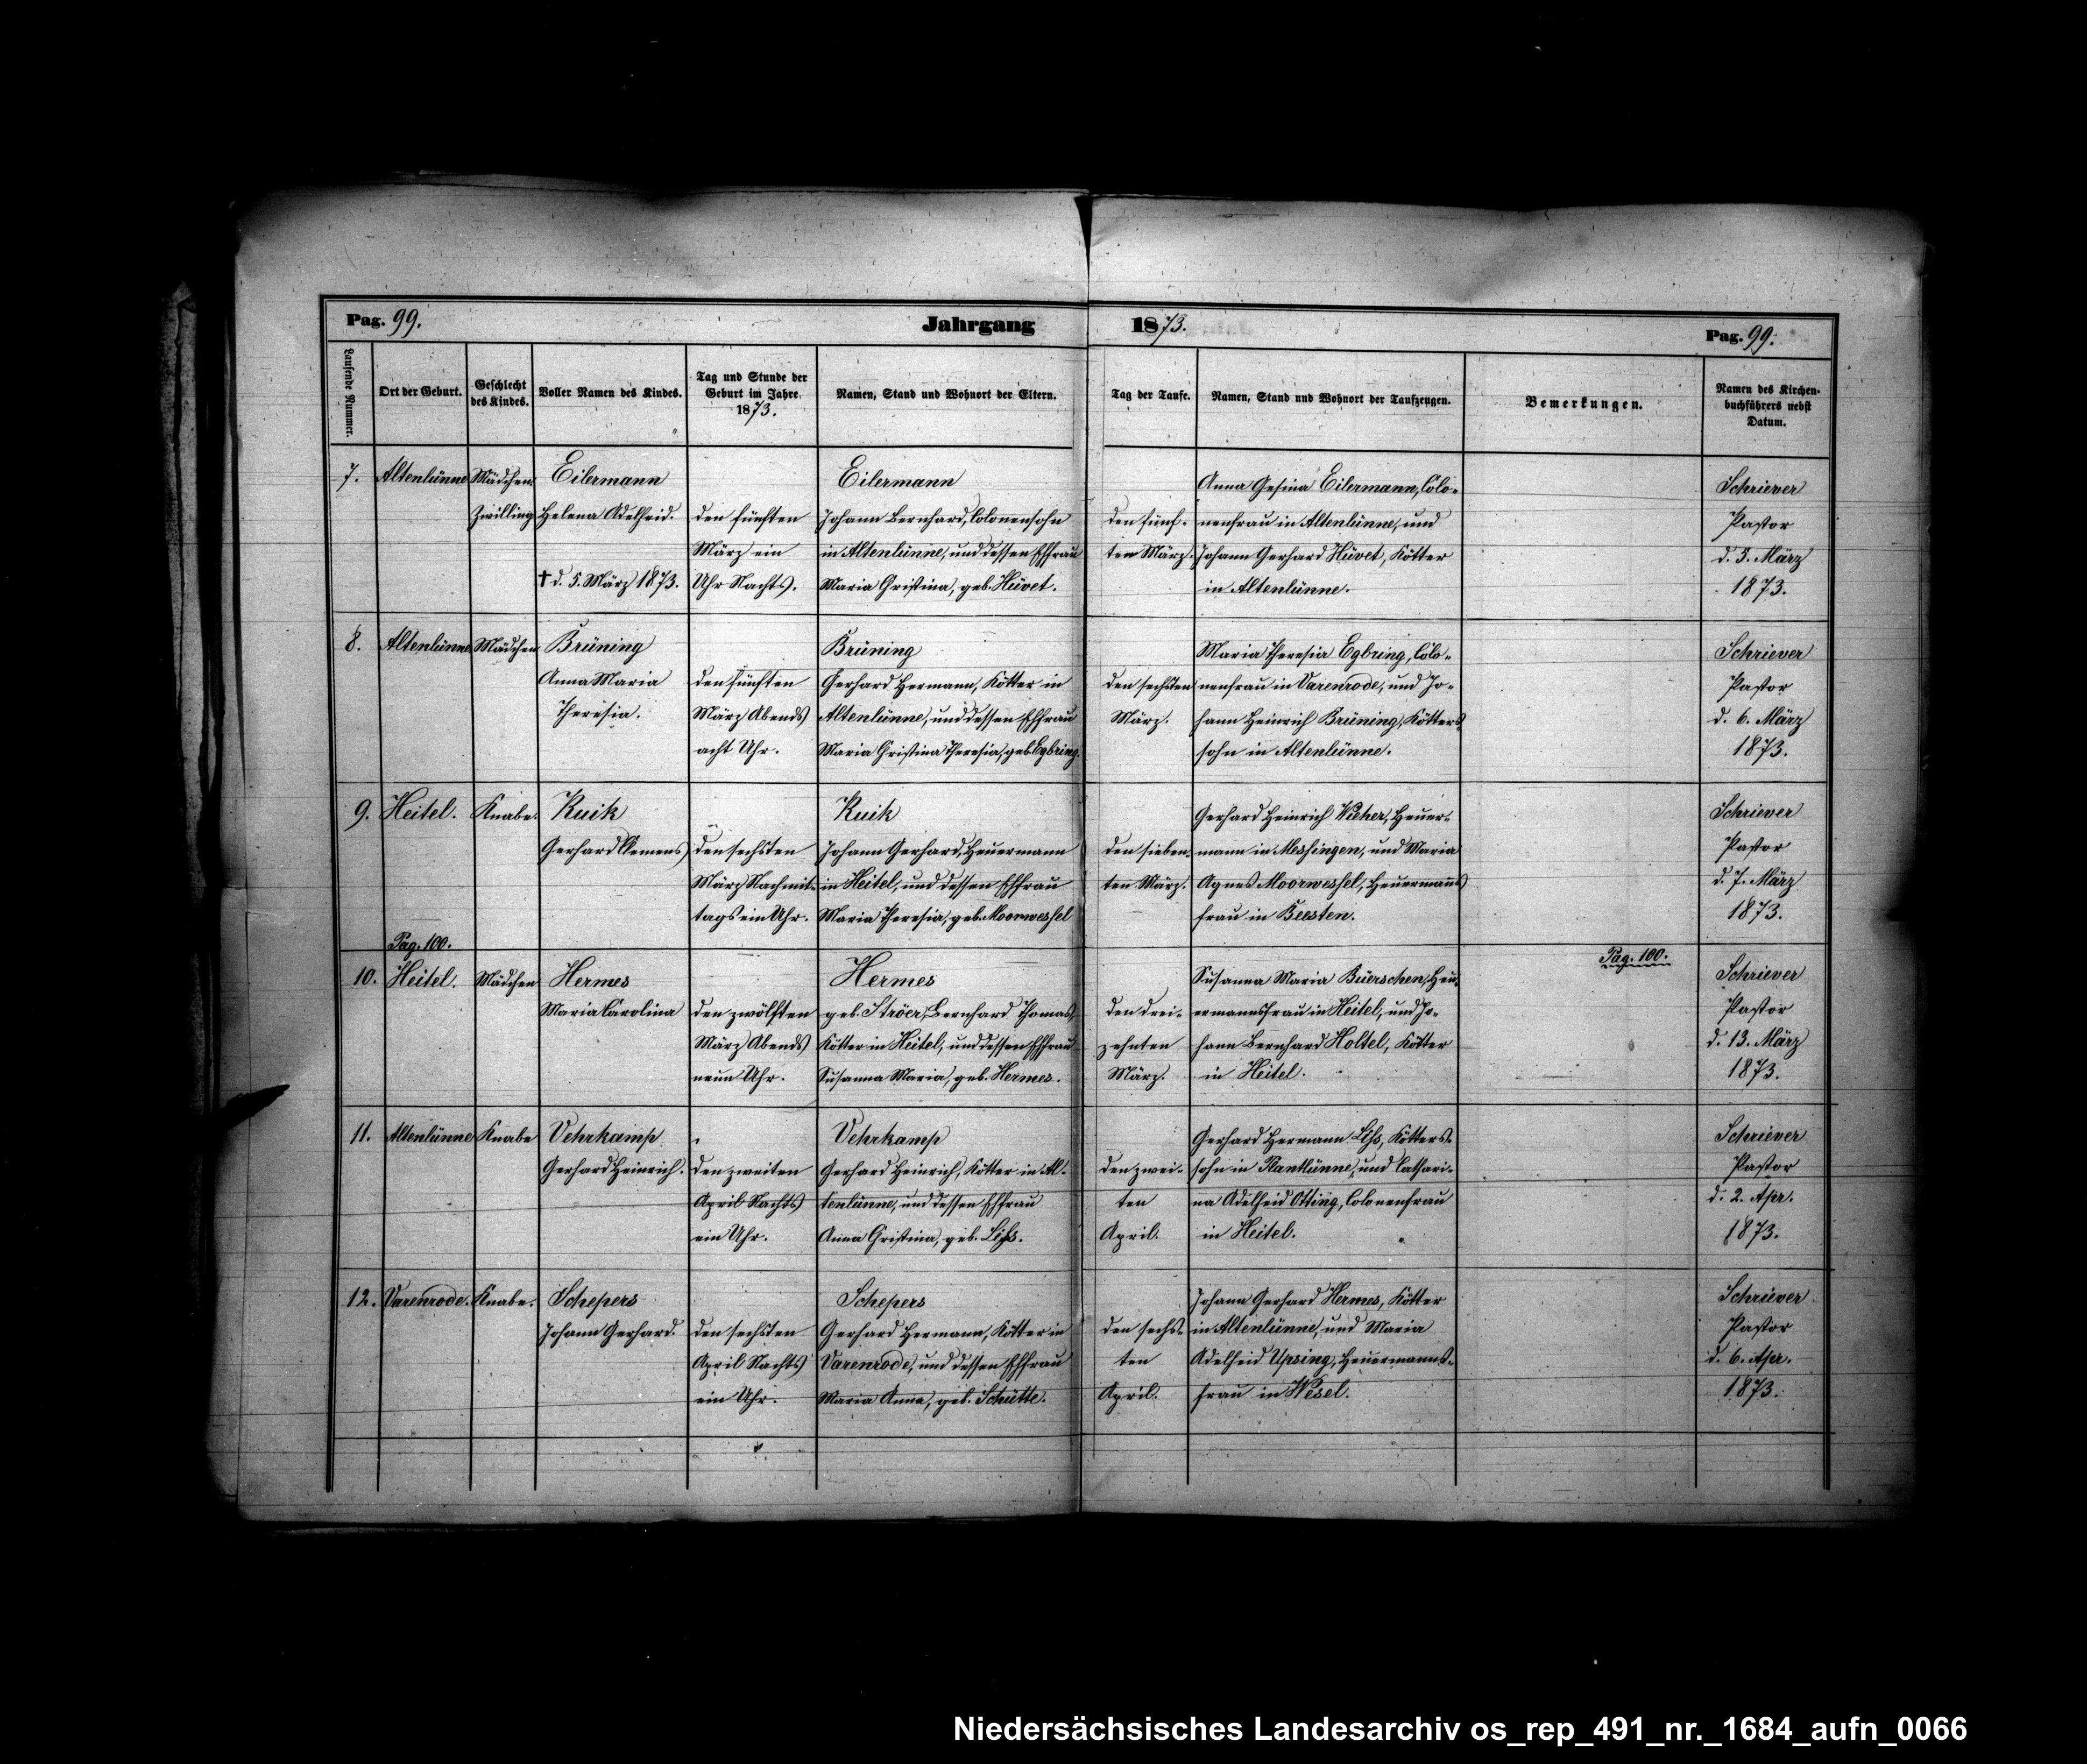 Pag. 99.
Jahrgang
1873.
Pag. 99.
Laufende Nummer.
Ort der Geburt.
Geschlecht
des Kindes.
Voller Namen des Kindes.
Tag und Stunde der
Geburt im Jahre
1873.
Namen, Stand und Wohnort der Eltern.
Tag der Taufe.
Namen, Stand und Wohnort der Taufzeugen.
Bemerkungen.
Namen des Kirchen-
buchführers nebst
Datum.
7.
Altenlünne
Mädchen
Zwilling
Eilermann
Helena Adelheid.
† d. 5. März 1873.
den fünften
März ein
Uhr Nachts.
Eilermann
Johann Bernhard, Colonensohn
in Altenlünne, und dessen Ehfrau
Maria Christina, geb. Hüvet.
den fünf-
ten März.
Anna Gesina Eilermann, Colo-
nenfrau in Altenlünne, und
Johann Gerhard Hüvet, Kötter
in Altenlünne.
Schriever
Pastor
d. 5. März
1873.
8.
Altenlünne
Mädchen
Brüning
Anna Maria
Theresia.
den fünften
März Abends
acht Uhr.
Brüning
Gerhard Hermann, Kötter in
Altenlünne, und dessen Ehfrau
Maria Christina Theresia, geb. Egbring.
den sechsten
März.
Maria Theresia Egbring, Colo-
nenfrau in Varenrode, und Jo-
hann Heinrich Brüning, Kötters-
sohn in Altenlünne.
Schriever
Pastor
d. 6. März
1873.
9.
Heitel.
Knabe.
Ruik
Gerhard Clemens
den sechsten
März Nachmit-
tags ein Uhr.
Ruik
Johann Gerhard, Heuermann
in Heitel, und dessen Ehfrau
Maria Theresia, geb. Moorwessel
den sieben-
ten März.
Gerhard Heinrich, Heuer-
mann in Messingen, und Maria
Agnes Moorwessel, Heuermanns
frau in Beesten.
Schriever
Pastor
d. 7. März
1873.
Pag. 100.
Pag. 100.
10.
Heitel.
Mädchen
Hermes
Maria Carolina
den zwölften
März Abends
neun Uhr.
Hermes
geb. Ströer, Bernhard Thomas,
Kötter in Heitel, und dessen Ehfrau
Susanna Maria, geb. Hermes.
den drei-
zehnten
März.
Susanna Maria Büerschen, Heu-
ermannsfrau in Heitel, und Jo-
hann Bernhard Holtel, Kötter
in Heitel.
Schriever
Pastor
d. 13. März
1873.
11.
Altenlünne
Knabe
Vehrkamp
Gerhard Heinrich.
den zweiten
April Nachts
ein Uhr.
Vehrkamp
Gerhard Heinrich, Kötter in Al-
tenlünne, und dessen Ehfrau
Anna Christina, geb. Liss.
den zwei-
ten
April.
Gerhard Hermann Liss, Kötters-
sohn in Plantlünne, und Cathari-
na Adelheid Otting, Colonenfrau
in Heitel.
Schriever
Pastor
d. 2. Apr.
1873.
12.
Varenrode.
Knabe.
Schepers
Johann Gerhard.
den sechsten
April Nachts
ein Uhr.
Schepers
Gerhard Hermann, Kötter in
Varenrode, und dessen Ehfrau
Maria Anna, geb. Schütte.
den sechs-
ten
April.
Johann Gerhard Hermes, Kötter
in Altenlünne, und Maria
Adelheid Upsing, Heuermanns-
frau in Wesel.
Schriever
Pastor
d. 6. Apr.
1873.
Niedersächsisches Landesarchiv os_rep_491_nr._1684_aufn_0066